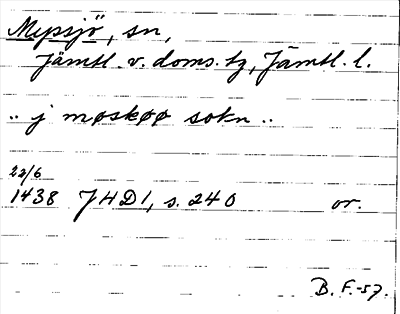 Mypsjö, sn,
Jämtl. v. doms. tg, Jämtl. l.
.. j møskøø sokn ..
22/6
1438 JHD1, s. 240 or.
B. F.-57.